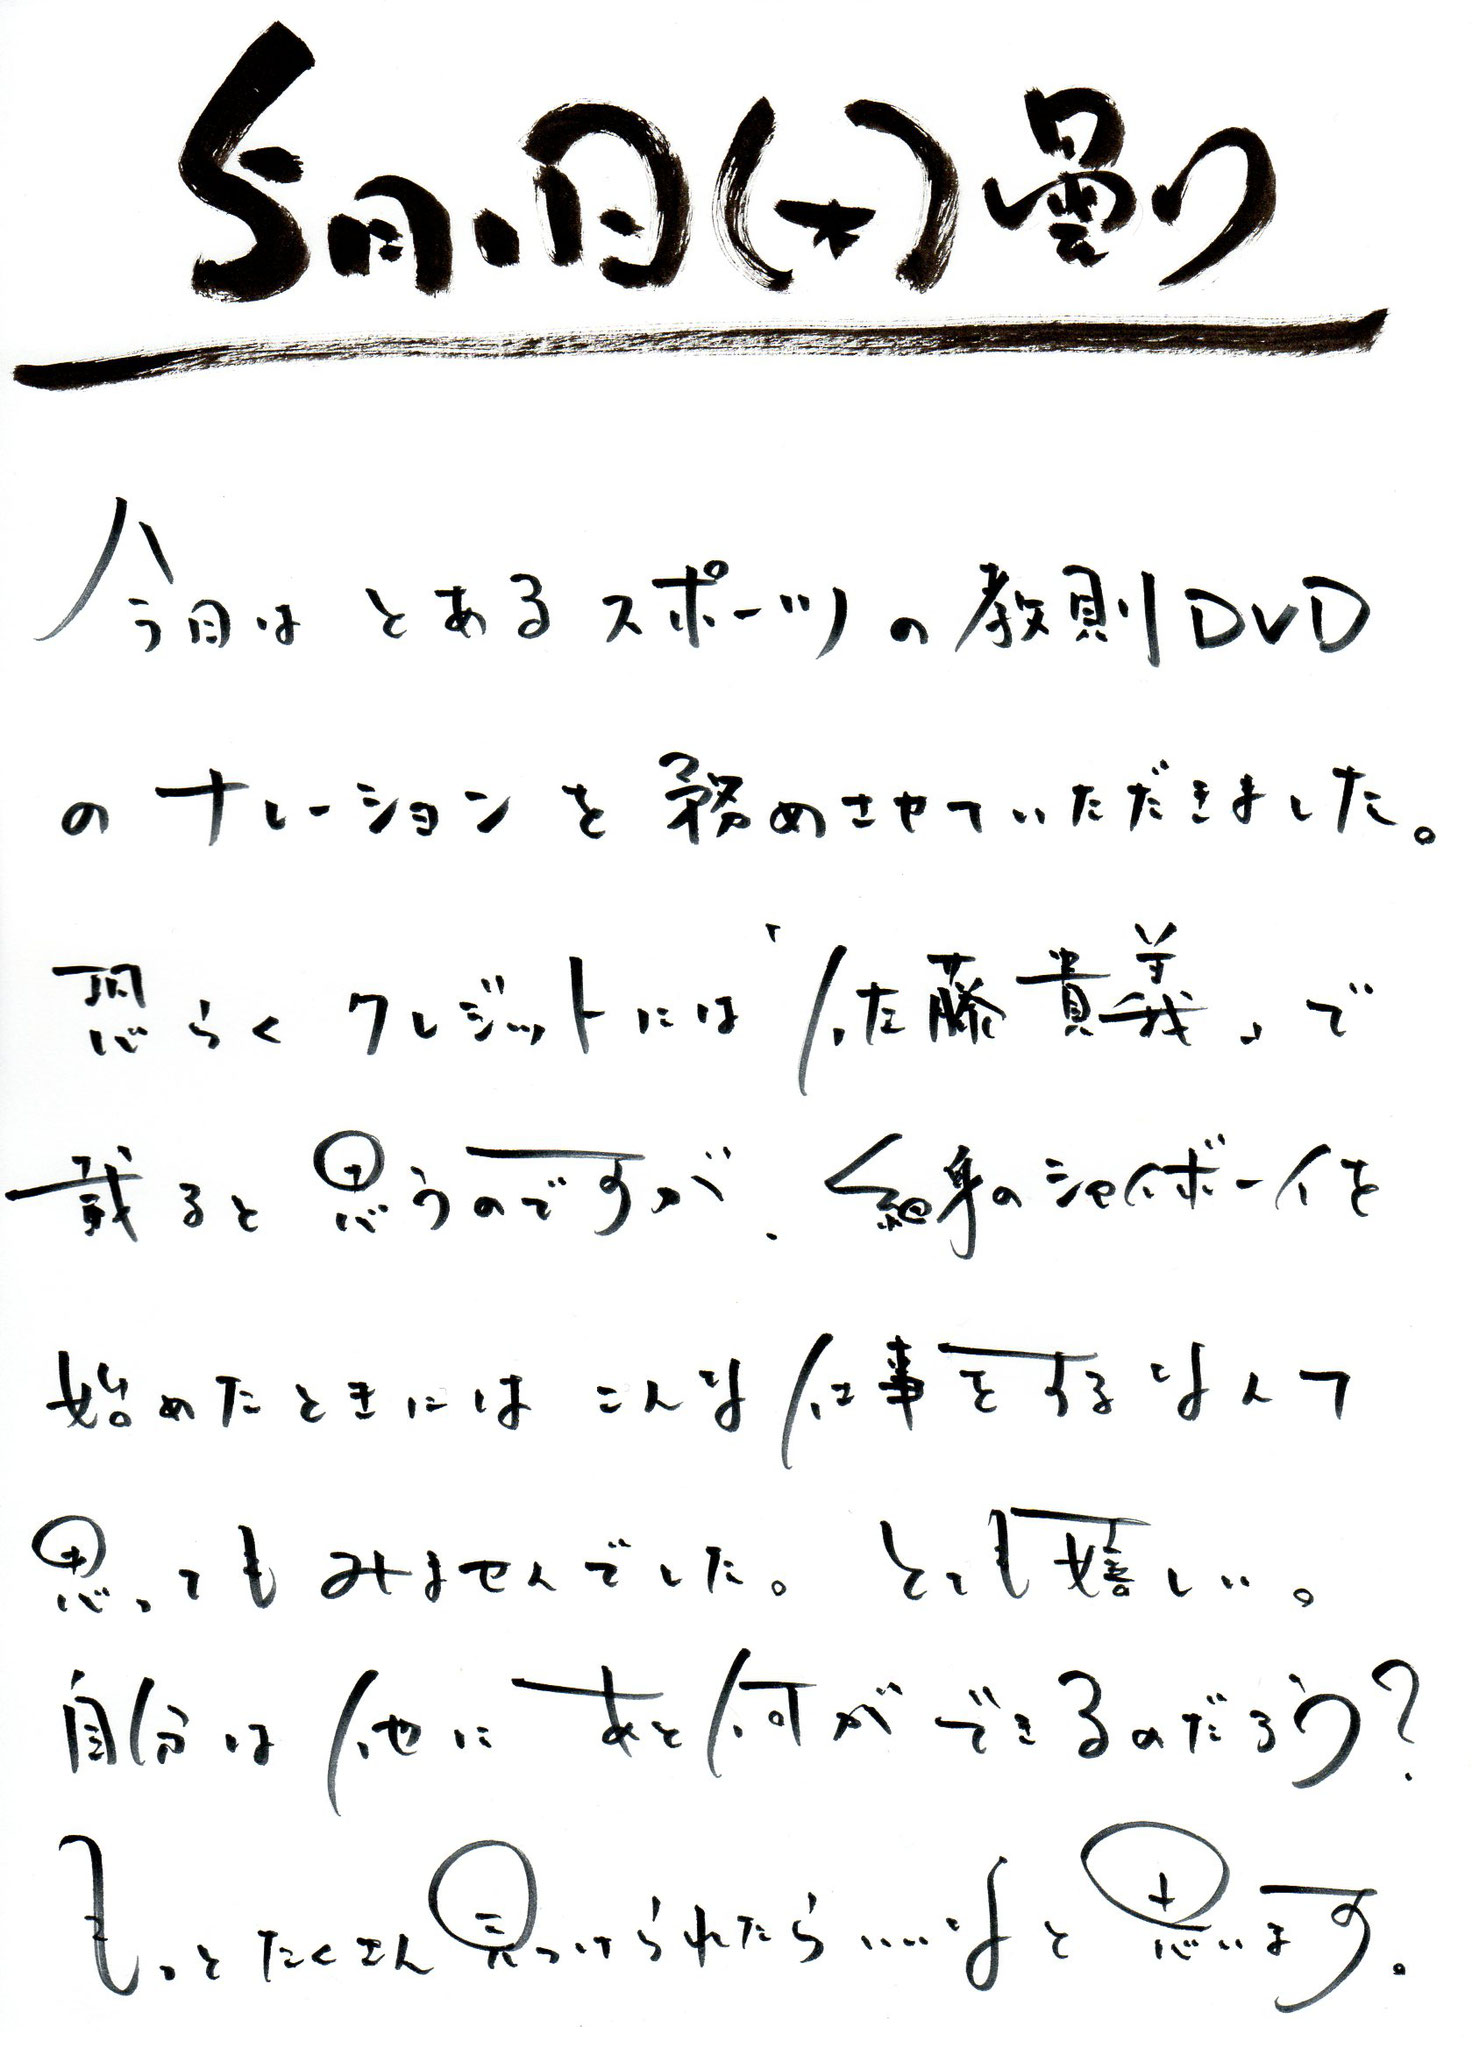 5月1日(木)曇り
今日はとあるスポーツの教則DVD
のナレーションを務めさせていただきました。
恐らくクレジットには「佐藤貴義」で
載ると思うのですが、細身のシャイボーイを
始めたときにはこんな仕事をするなんて
思ってもみませんでした。とても嬉しい。
自分は他にあと何ができるのだろう?
もっとたくさん見つけられたらいいなと思います。